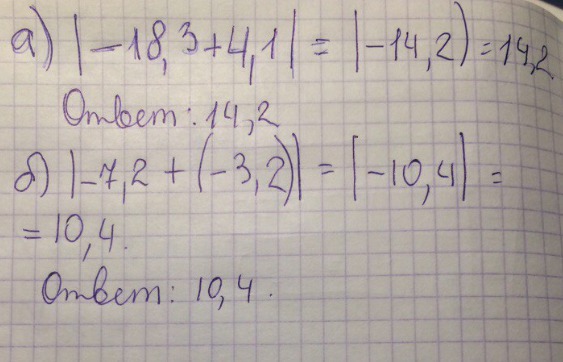 а) |-18,3+4,1| = |-14,2) = 14,2
Ответ: 14,2
б) |-7,2 + (-3,2)| = |-10,4| =
= 10,4.
Ответ: 10,4.